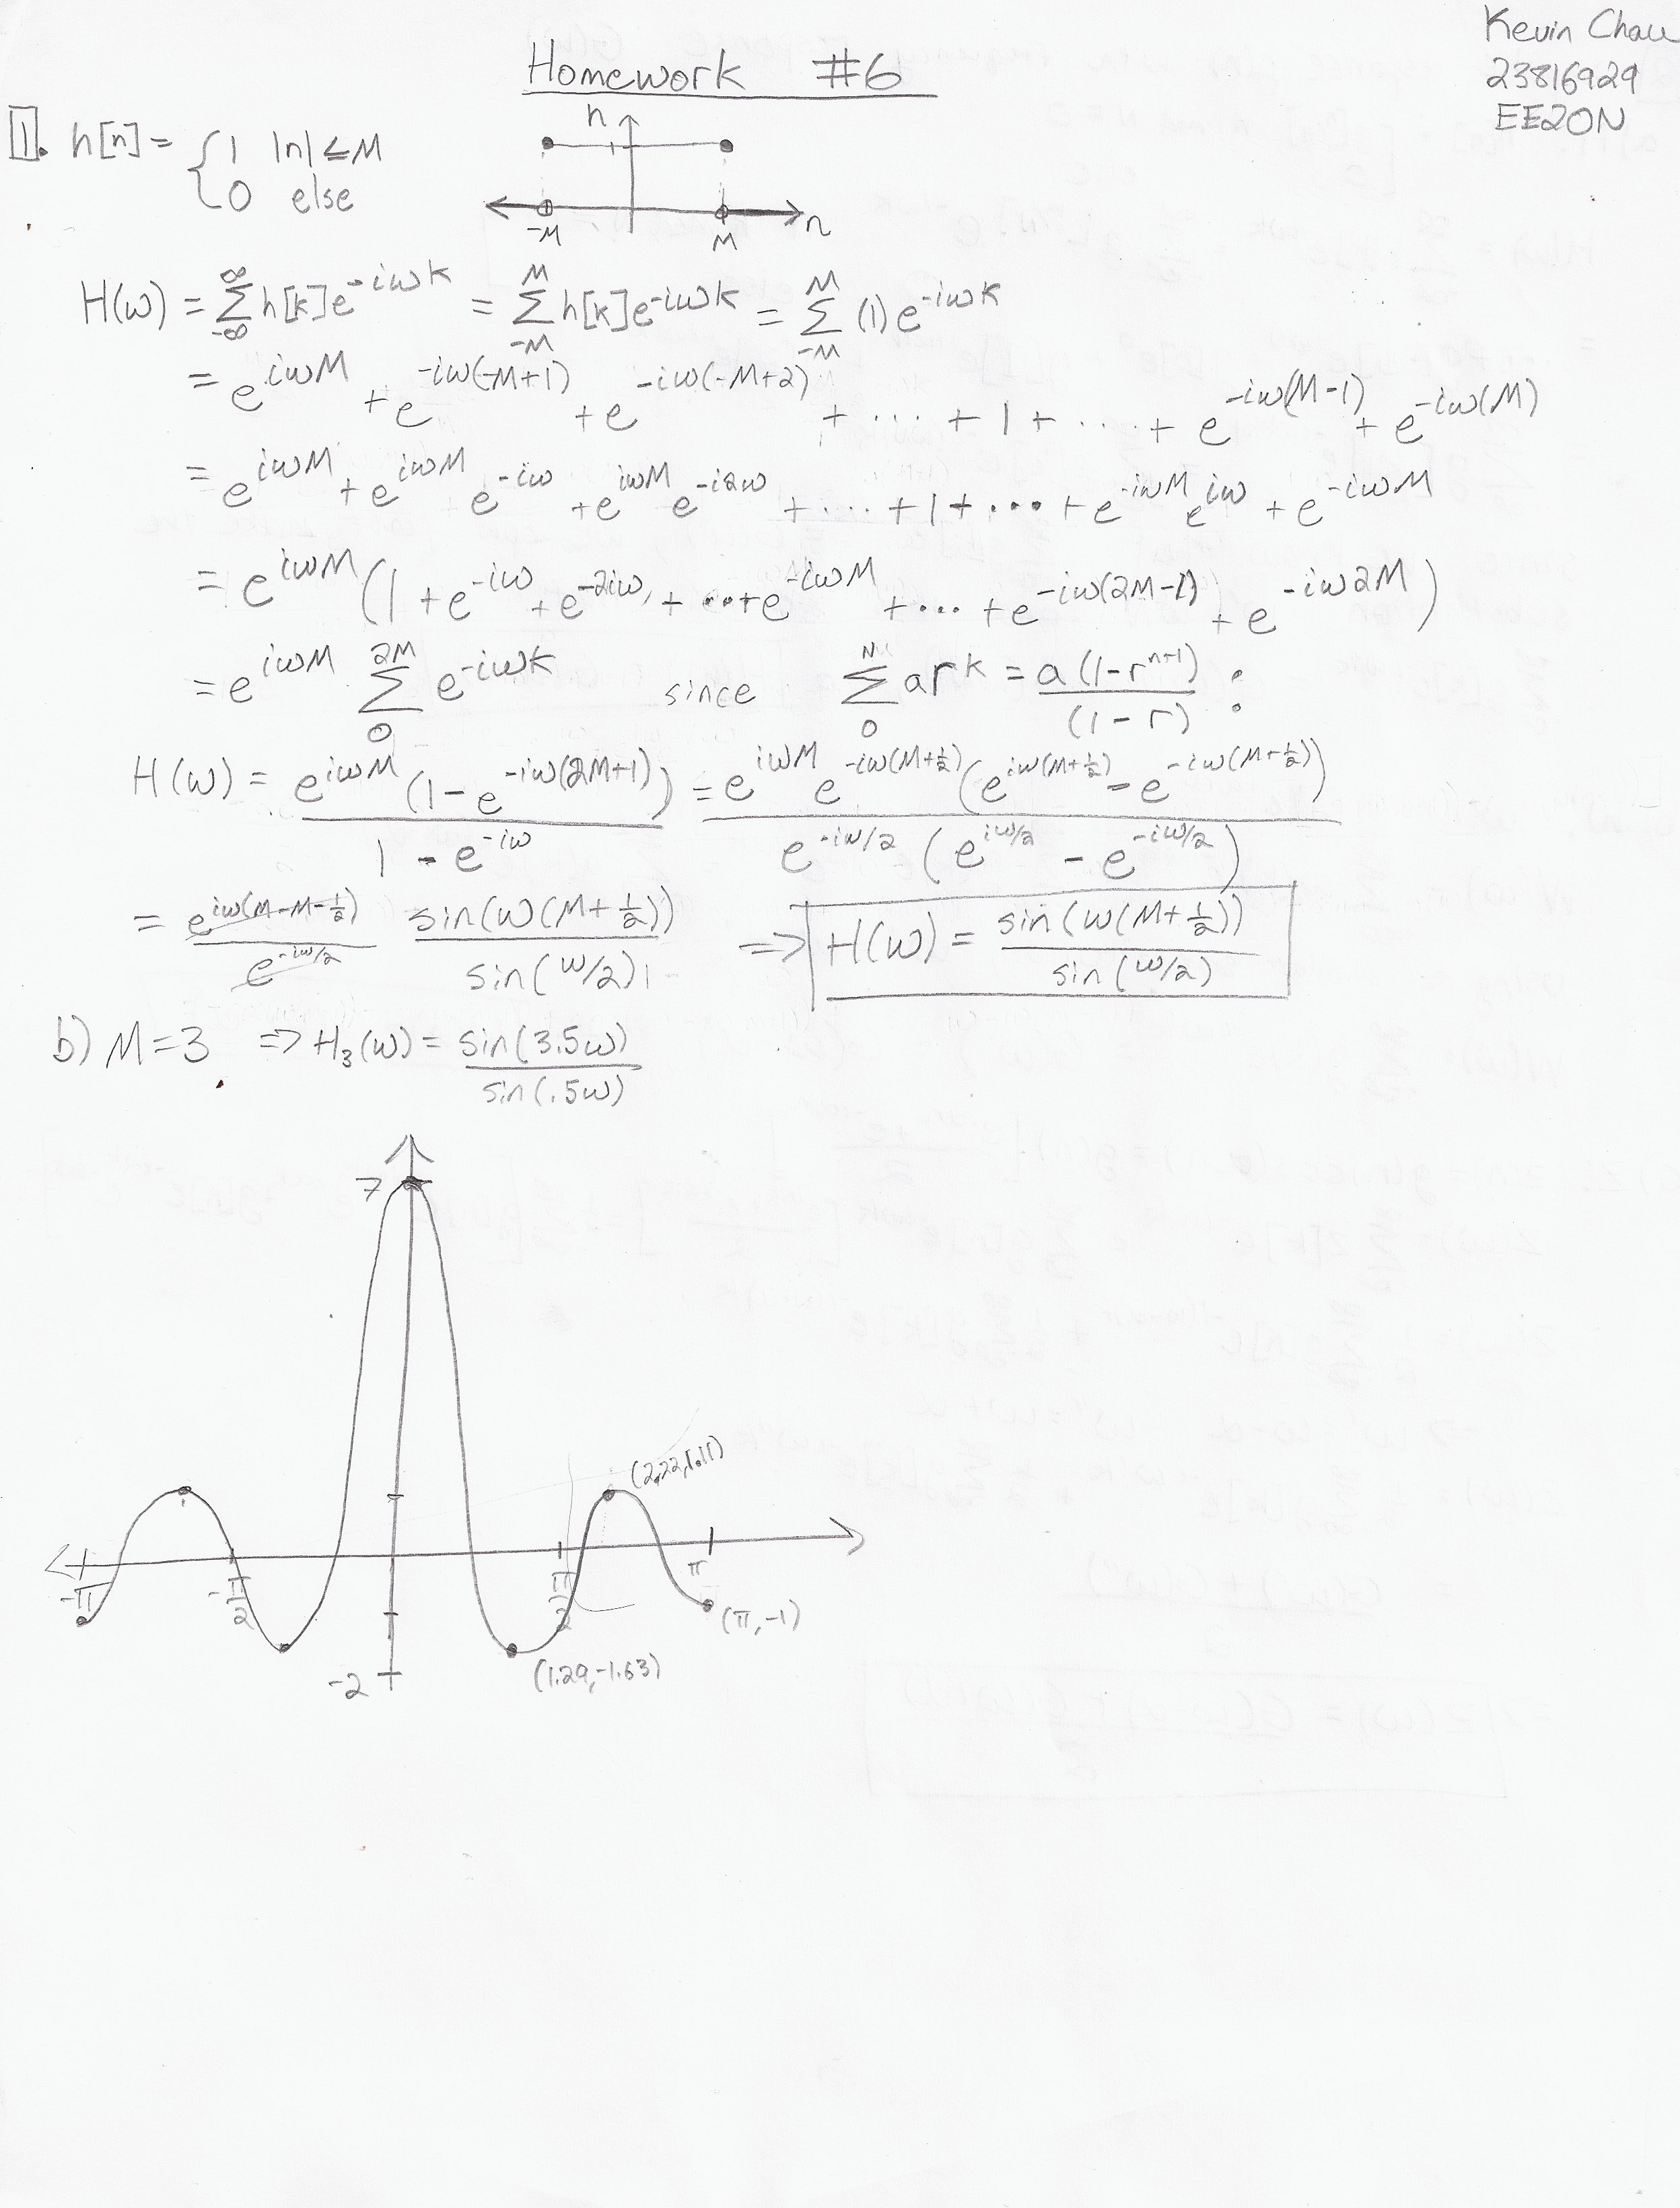 Kevin Chau
23816929
EE20N
Homework #6
1. h[n] = { 1 |n| ≤ M
0 else
h
-M M n
H(ω) = ∑_{-∞}^{∞} h[k]e^{-iωk} = ∑_{-M}^{M} h[k]e^{-iωk} = ∑_{-M}^{M} (1)e^{-iωk}
= e^{iωM} + e^{-iω(-M+1)} + e^{-iω(-M+2)} + ... + 1 + ... + e^{-iω(M-1)} + e^{-iω(M)}
= e^{iωM} + e^{iωM} e^{-iω} + e^{iωM} e^{-i2ω} + ... + 1 + ... + e^{-iωM} e^{iω} + e^{-iωM}
= e^{iωM} (1 + e^{-iω} + e^{-2iω} + ... + e^{-iωM} + ... + e^{-iω(2M-1)} + e^{-iω2M})
= e^{iωM} ∑_{0}^{2M} e^{-iωk} since ∑_{0}^{N} ar^k = a(1-r^{n+1})/(1-r) :
H(ω) = e^{iωM}(1-e^{-iω(2M+1)})/(1-e^{-iω}) = e^{iωM} e^{-iω(M+½)}(e^{iω(M+½)} - e^{-iω(M+½)})/(e^{-iω/2}(e^{iω/2} - e^{-iω/2}))
= e^{iω(M-M-½)}/e^{-iω/2} sin(ω(M+½))/sin(ω/2) => H(ω) = sin(ω(M+½))/sin(ω/2)
b) M=3 => H₃(ω) = sin(3.5ω)/sin(.5ω)
7
(2.22,1.11)
-π -π/2 π/2 π
(π,-1)
(1.29,-1.63)
-2